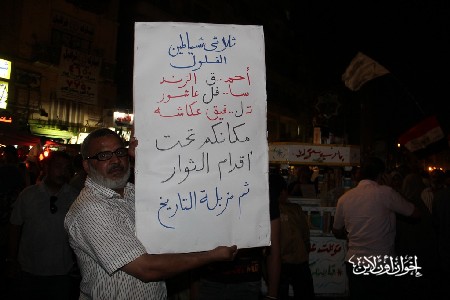 ثلاثي شياطين
الفلول
أحمـ..ق الزند
سا..فل عاشور
تل..فيق عكاشه
مكانكم تحت
أقدام الثوار
ثم مزبلة التاريخ
إخوان أون لاين